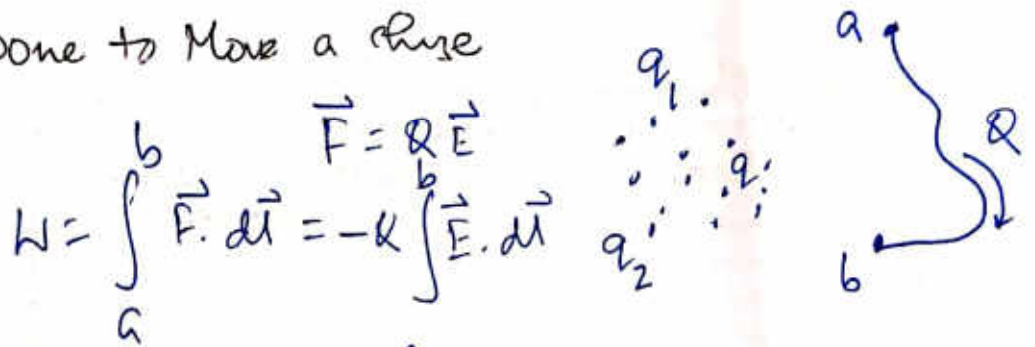 one to Move a
F⃗ = Q E⃗
W = ∫ₐᵇ F⃗ . dl⃗ = -Q ∫ᵇ E⃗ . dl⃗
q₁
q
q₂
a
Q
b